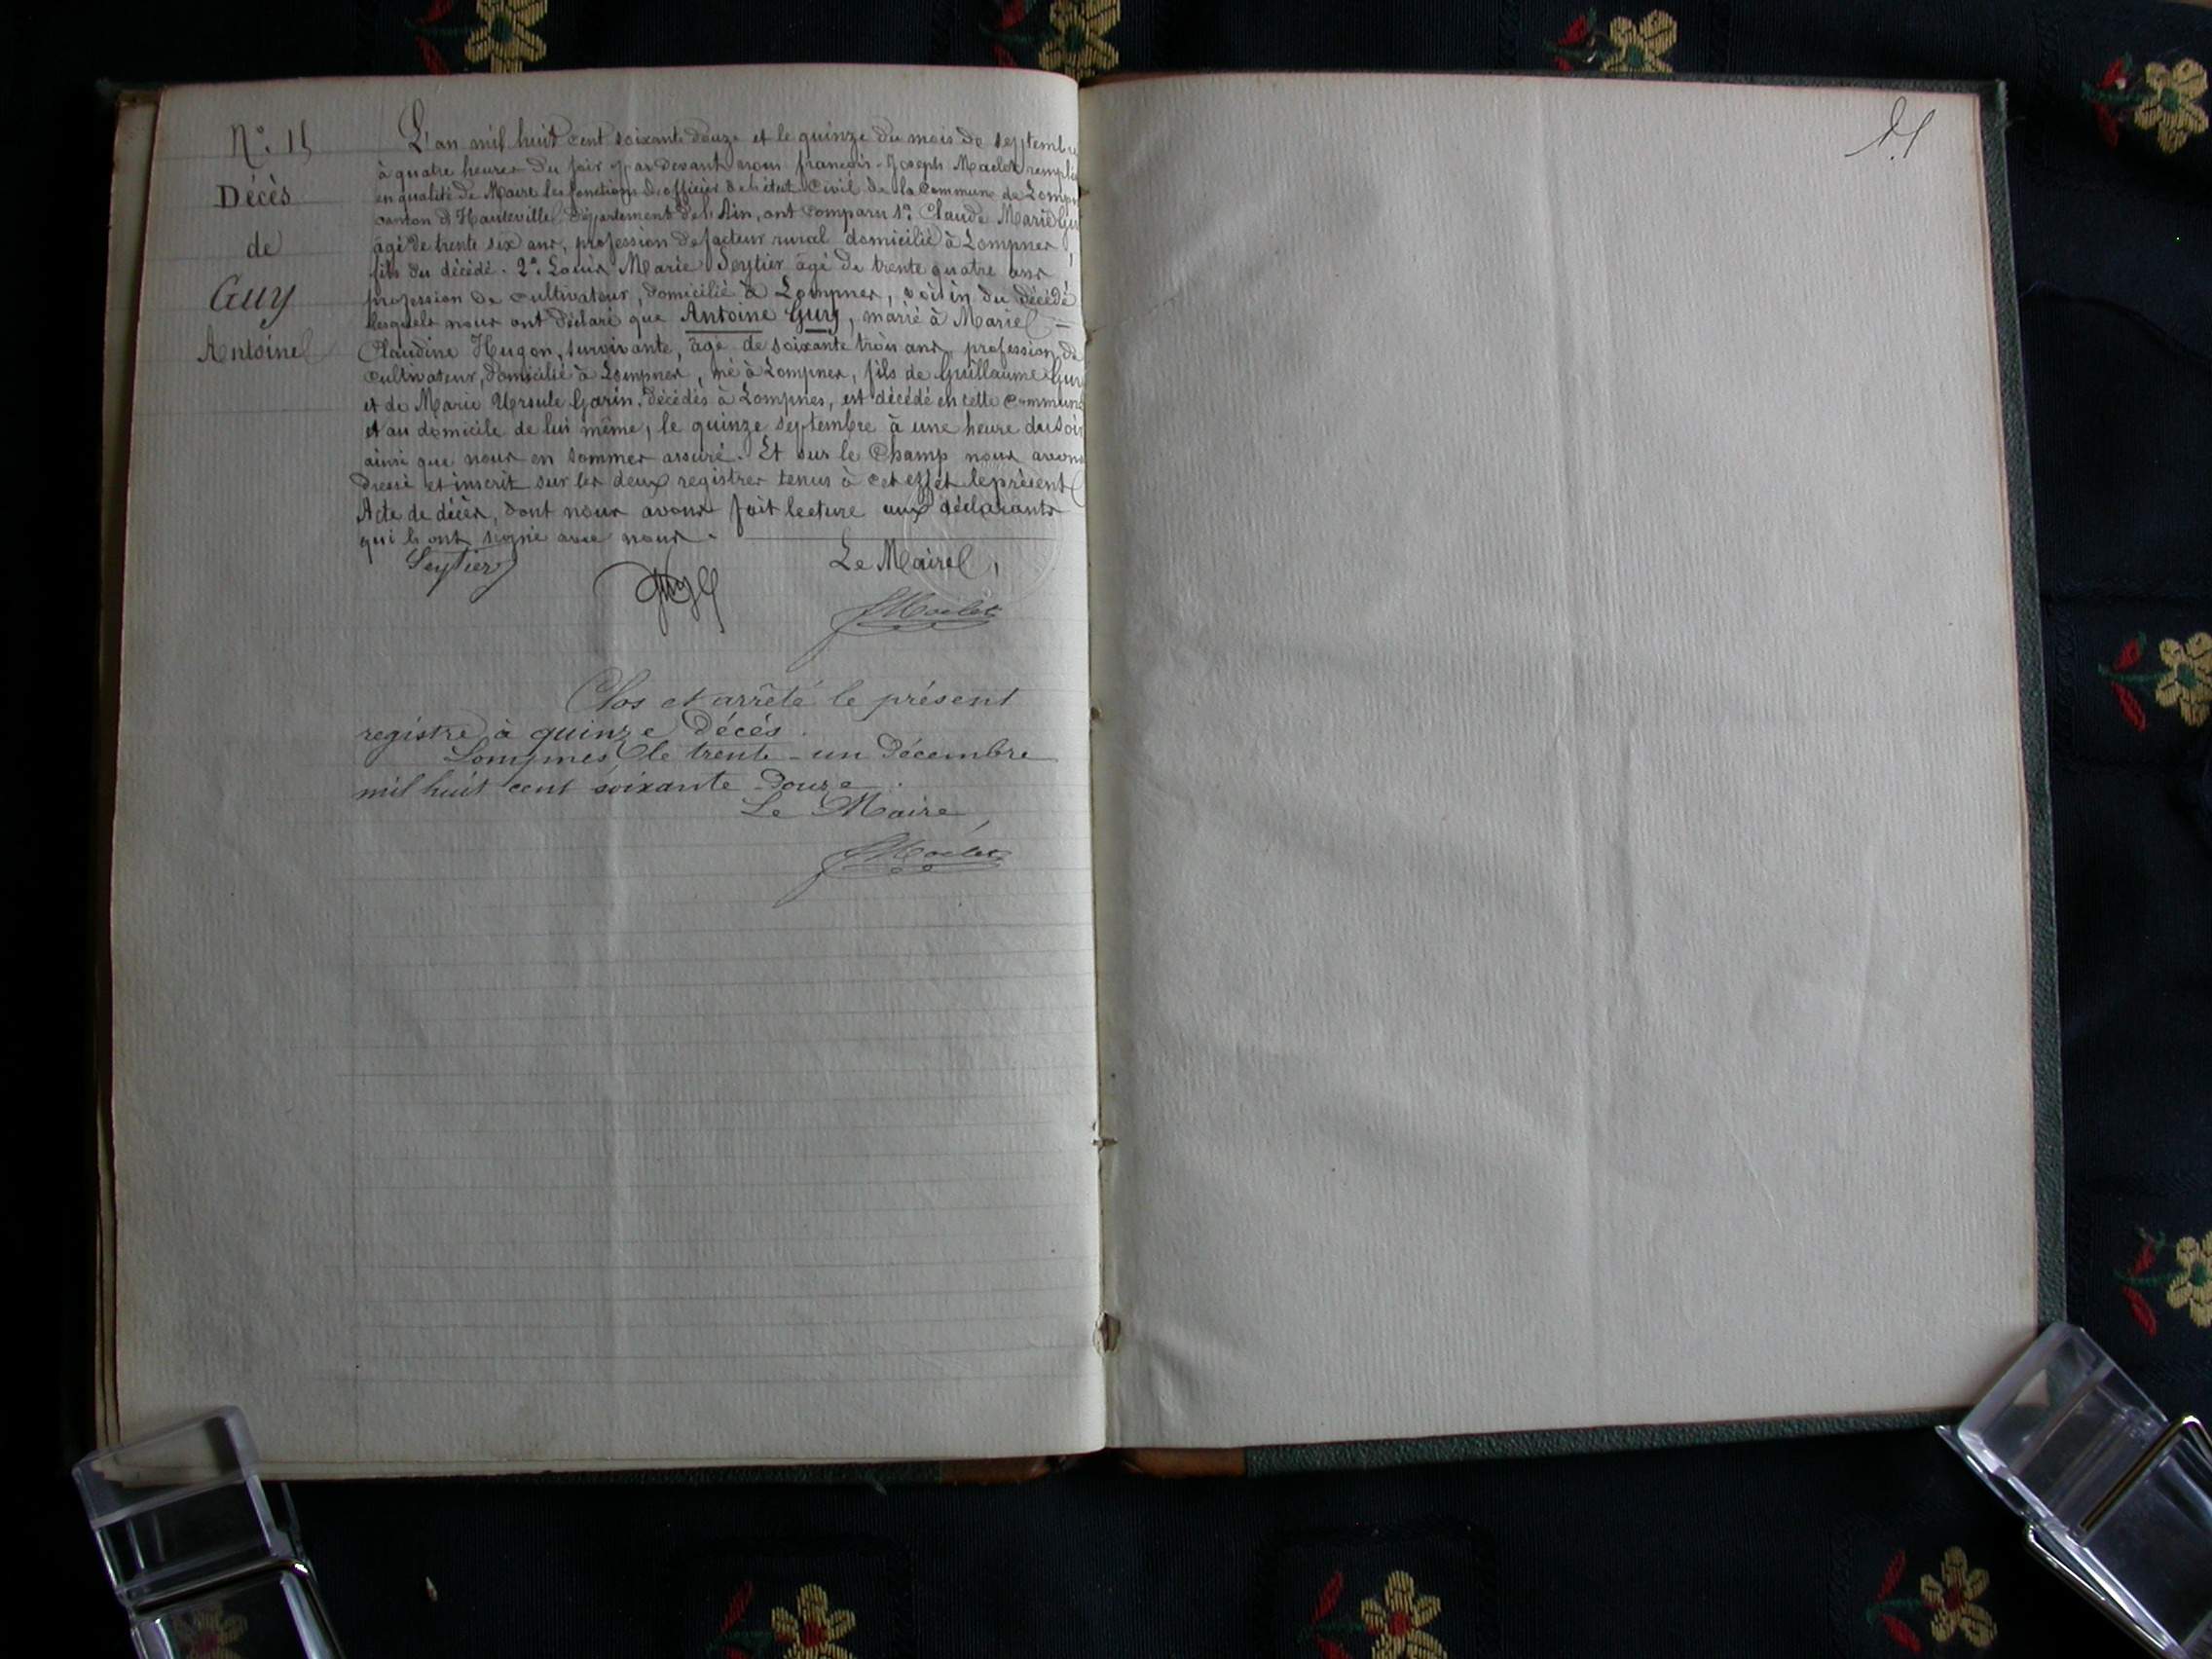 N.° 15
Décès
de
Guy
Antoine
L'an mil huit cent soixante douze et le quinze du mois de septembre
à quatre heures du soir par devant nous françois-Joseph Maclet
en qualité de Maire les fonctions d'officier de l'état Civil de la Commune de
canton d'Hauteville département de l'Ain, ont comparu 1° Claude Marie
âgé de trente six ans, profession de facteur rural domicilié à Lompnes,
fils du décédé. 2° Louis Marie Seytier âgé de trente quatre ans
profession de cultivateur, domicilié à Lompnes, voisin du décédé
lesquels nous ont déclaré que Antoine Guy, marié à Marie =
Claudine Hugon, survivante, âgé de soixante trois ans, profession de
cultivateur, domicilié à Lompnes, né à Lompnes, fils de Guillaume Guy
et de Marie Ursule Garin, décédés à Lompnes, est décédé en cette Commune
et au domicile de lui même, le quinze septembre à une heure du soir
ainsi que nous en sommes assuré. Et sur le Champ nous avons
dressé et inscrit sur les deux registres tenus à cet effet le présent
Acte de décès, dont nous avons fait lecture aux déclarants
qui l'ont signé avec nous.
Seytier
Guy
Le Maire,
Clos et arrêté le présent
registre à quinze décès.
Lompnes, le trente-un décembre
mil huit cent soixante douze.
Le Maire,